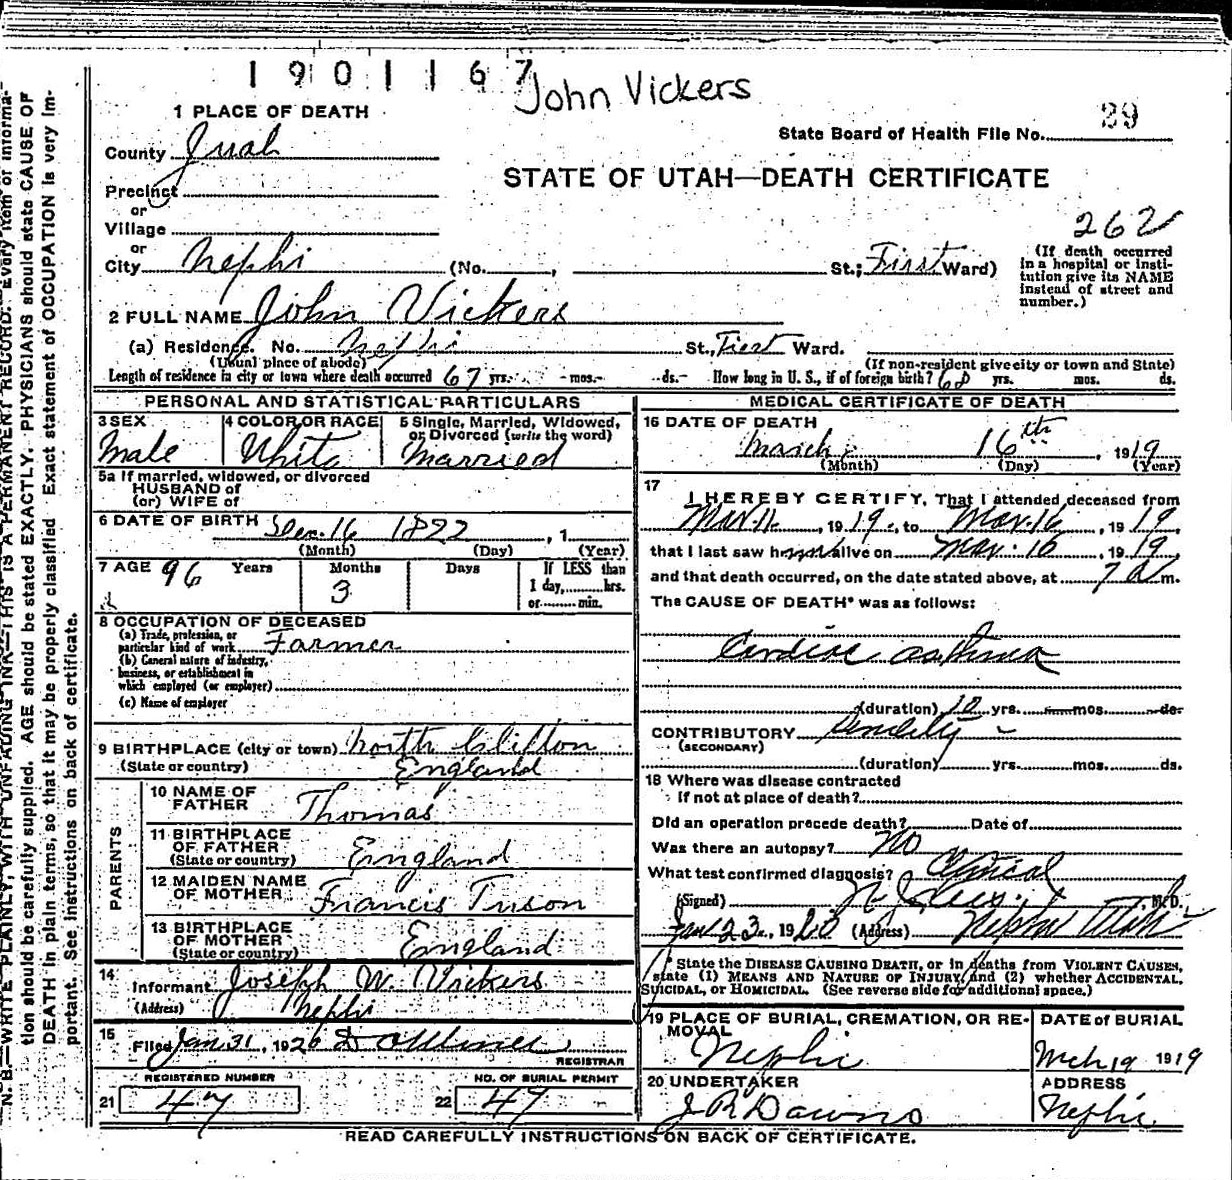 1 9 0 1 1 6 7
John Vickers
29
1 PLACE OF DEATH
State Board of Health File No.
County Juab
STATE OF UTAH—DEATH CERTIFICATE
Precinct
or
Village
or
City Nephi (No. , St.; First Ward)
262
(If death occurred
in a hospital or insti-
tution give its NAME
instead of street and
number.)
2 FULL NAME John Vickers
(a) Residence. No. Nephi St., First Ward.
(Usual place of abode) (If non-resident give city or town and State)
Length of residence in city or town where death occurred 67 yrs. mos. ds. How long in U. S., if of foreign birth? 68 yrs. mos. ds.
PERSONAL AND STATISTICAL PARTICULARS
3 SEX
Male
4 COLOR OR RACE
White
5 Single, Married, Widowed,
or Divorced (write the word)
Married
5a If married, widowed, or divorced
HUSBAND of
(or) WIFE of
6 DATE OF BIRTH Dec. 16 1822 , 1
(Month) (Day) (Year)
7 AGE 96 Years Months 3 Days
If LESS than
1 day, hrs.
or min.
8 OCCUPATION OF DECEASED
(a) Trade, profession, or
particular kind of work Farmer
(b) General nature of industry,
business, or establishment in
which employed (or employer)
(c) Name of employer
9 BIRTHPLACE (city or town) North Clifton
(State or country) England
PARENTS
10 NAME OF
FATHER Thomas
11 BIRTHPLACE
OF FATHER
(State or country) England
12 MAIDEN NAME
OF MOTHER Francis Tuson
13 BIRTHPLACE
OF MOTHER
(State or country) England
14
Informant Joseph W. Vickers
(Address) Nephi
15
Filed Jan 31, 1920
REGISTRAR
REGISTERED NUMBER
21 47
NO. OF BURIAL PERMIT
22 47
MEDICAL CERTIFICATE OF DEATH
16 DATE OF DEATH
March 16th , 1919
(Month) (Day) (Year)
17
I HEREBY CERTIFY, That I attended deceased from
Mar. 11 , 1919, to Mar. 16 , 1919,
that I last saw him alive on Mar. 16 , 1919,
and that death occurred, on the date stated above, at 7 a m.
The CAUSE OF DEATH* was as follows:
Cardiac asthma
(duration) 10 yrs. mos. ds.
CONTRIBUTORY Senility
(SECONDARY)
(duration) yrs. mos. ds.
18 Where was disease contracted
If not at place of death?
Did an operation precede death? Date of
Was there an autopsy? No
What test confirmed diagnosis? Clinical
(Signed) M.D.
Jan 23, 1920 (Address) Nephi Utah
* State the DISEASE CAUSING DEATH, or in deaths from VIOLENT CAUSES,
state (1) MEANS AND NATURE OF INJURY, and (2) whether ACCIDENTAL,
SUICIDAL, or HOMICIDAL. (See reverse side for additional space.)
19 PLACE OF BURIAL, CREMATION, OR RE-
MOVAL
Nephi
DATE of BURIAL
Mch 19 1919
20 UNDERTAKER
J R Dawns
ADDRESS
Nephi.
READ CAREFULLY INSTRUCTIONS ON BACK OF CERTIFICATE.
N. B.—WRITE PLAINLY, WITH UNFADING INK—THIS IS A PERMANENT RECORD. Every item of informa-
tion should be carefully supplied. AGE should be stated EXACTLY. PHYSICIANS should state CAUSE OF
DEATH in plain terms, so that it may be properly classified. Exact statement of OCCUPATION is very im-
portant. See instructions on back of certificate.